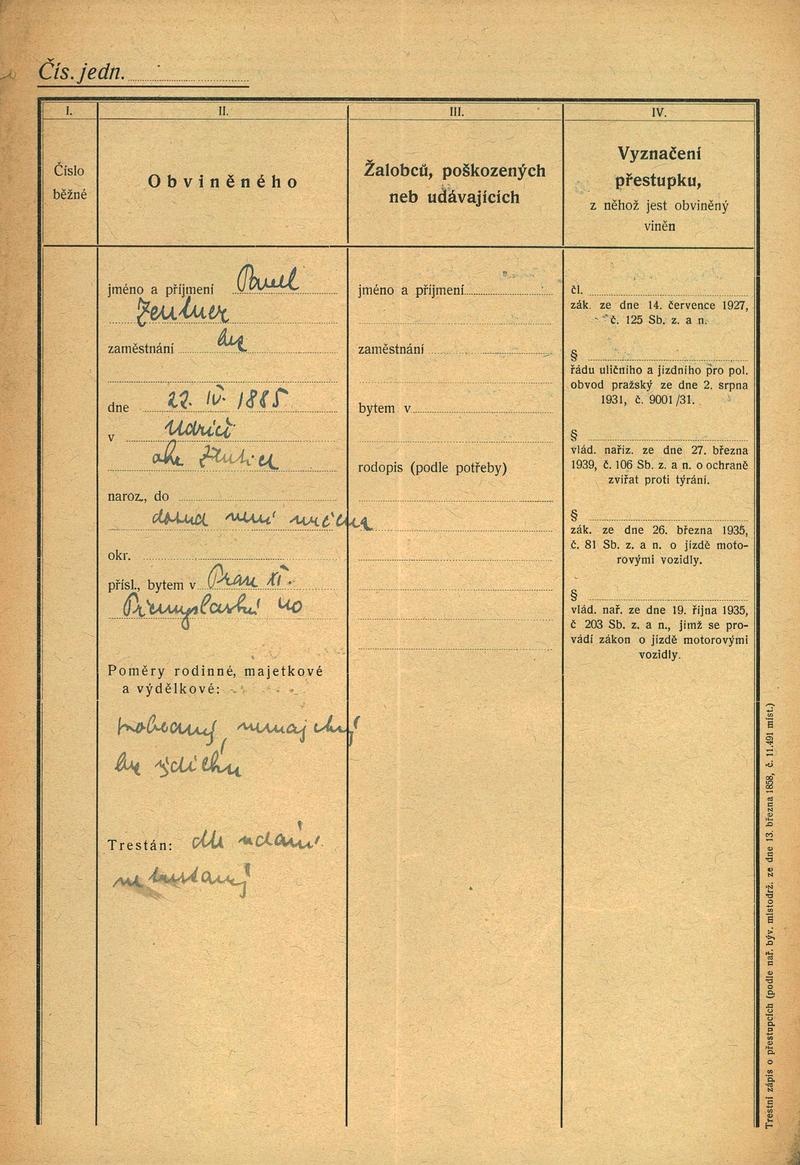 Čís. jedn.
I.
Číslo
běžné
II.
Obviněného
jméno a příjmení Pavel
Zentner
zaměstnání
dne 22. IV. 1885
v Udrici
naroz., do
okr.
přísl., bytem v XI.
40
Poměry rodinné, majetkové
a výdělkové:
Trestán: dle udání
III.
Žalobců, poškozených
neb udávajících
jméno a příjmení
zaměstnání
bytem v
rodopis (podle potřeby)
IV.
Vyznačení
přestupku,
z něhož jest obviněný
viněn
čl.
zák. ze dne 14. července 1927,
č. 125 Sb. z. a n.
§
řádu uličního a jízdního pro pol.
obvod pražský ze dne 2. srpna
1931, č. 9001/31.
§
vlád. nařiz. ze dne 27. března
1939, č. 106 Sb. z. a n. o ochraně
zvířat proti týrání.
§
zák. ze dne 26. března 1935,
č. 81 Sb. z. a n. o jízdě moto-
rovými vozidly.
§
vlád. nař. ze dne 19. října 1935,
č 203 Sb. z. a n., jímž se pro-
vádí zákon o jízdě motorovými
vozidly.
Trestní zápis o přestupcích (podle nař. býv. místodrž. ze dne 13. března 1858, č. 11.491 míst.)